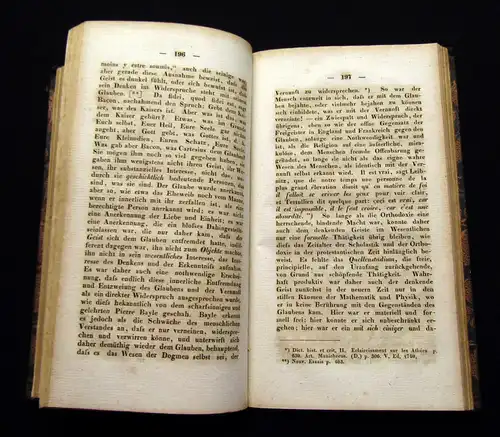 — 196 —
moins y estre soumis," auch die seinige war,
aber gerade diese Ausnahme beweist, dass der
Geist es dunkel fühlt, oder sich bewusst ist, dass
sein Denken im Widerspruche steht mit dem
Glauben. **) Da fidei, quod fidei est, sagt
Bacon, nachahmend den Spruch: Gebt dem Kaiser,
was des Kaisers ist. Aber was ist das, was
dem Kaiser gehört? Etwas, was Euch
selbst, Euer Heil, Eure Seele gar nicht
angeht, aber Gott gebt, was Gottes ist,
Eure Kleinodien, Euren Schatz, Euch selbst.
Was gab aber Bacon, was Cartesius dem Glauben?
Sie mögen ihm noch so viel gegeben haben,
ihm wenigstens nicht ihren Geist, ihr Wesen,
ihr substanzielles Interesse, das, was sie
die geschichtlich bedeutende Personen, das
was sie sind. Der Glaube wurde nothwendig,
da er, so wie etwa die Eheweib noch vom Manne,
wenn er innerlich mit ihr zerfallen ist, als eine
berechtigte Person anerkannt wird, so war es nicht
eine Anerkennung der Liebe und Einheit, es war
eine Anerkennung, die ein blosses Dahingestellt-
seinlassen war, da er zu einem dem Wesen des
Geist sich dem Glauben entfremdet hatte, indifferent
geworden war, ihn nicht zum Objecte machte,
ihn nicht in sein wesentliches Interesse, das Interesse
des Denkens und der Erkenntniss aufnahm.
Es war daher auch eine nothwendige Erscheinung,
dass endlich diese innerliche Entfremdung
und Entzweiung des Glaubens und der Vernunft
als ein direkter Widerspruch ausgesprochen wurde,
wie dies bekanntlich von dem scharfsinnigen und
gelehrten Pierre Bayle geschah. Bayle erkennt
es jedoch als die Schwäche des menschlichen
Verstandes an, dass er nur verneinen, widersprechen
und verwirren könne, und unterwirft sich
daher demüthig wieder dem Glauben, behauptend,
dass es das Wesen der Dogmen selbst sei, der
— 197 —
Vernunft zu widersprechen *) So war der
Mensch entzweit in sich, dass er mit dem Glau-
ben bejahte, oder vielmehr bejahen zu können
sich einbildete, was er mit der Vernunft direkt
verneinte! — ein Zwiespalt und Widerspruch, der
übrigens, eben so wie der offne Gegensatz der
Freigeister in England und Frankreich gegen den
Glauben, solange eine Nothwendigkeit war und
ist, als die Religion auf eine äusserliche, mira-
kulose, dem Menschen fremde Offenbarung ge-
gründet, so lange sie nicht als das eigne wahre
Wesen des Menschen, als identisch mit der Ver-
nunft selbst erkannt wird. Il est vrai, sagt Leib-
nitz, que de notre temps une personne de la
plus grande élévation disait qu'en matière de foi
il fallait se crêver les yeux pour voir clair,
et Tertullien dit quelque part: ceci est vrai, car
il est impossible, il le faut croire, car c'est une
absurdité. **) So lange als die Orthodoxie eine
herrschende, bindende Macht war, konnte daher
auch dem denkenden Geiste im Wesentlichen
nur eine formelle Thätigkeit übrig bleiben, wie
dies das Zeitalter der Scholastik und der Ortho-
doxie in der protestantischen Zeit hinlänglich be-
weist. Es fehlte das Quellenstudium, die freie,
principielle, auf den Uranfang zurückgehende,
von Grund aus schöpfende Thätigkeit. Wahr-
haft produktiv war daher auch der denkende
Geist zunächst in der neuen Zeit nur in den
stillen Räumen der Mathematik und Physik, wo
er in keine Berührung mit den Gegenständen des
Glaubens kam. Hier war er mit sich einiger und da-
*) Dict. hist. et crit. II. Eclaircissement sur les Athées p.
630. Art. Manichéens. (D.) p. 306. V. Ed. 1740.
**) Nouv. Essais p. 463.